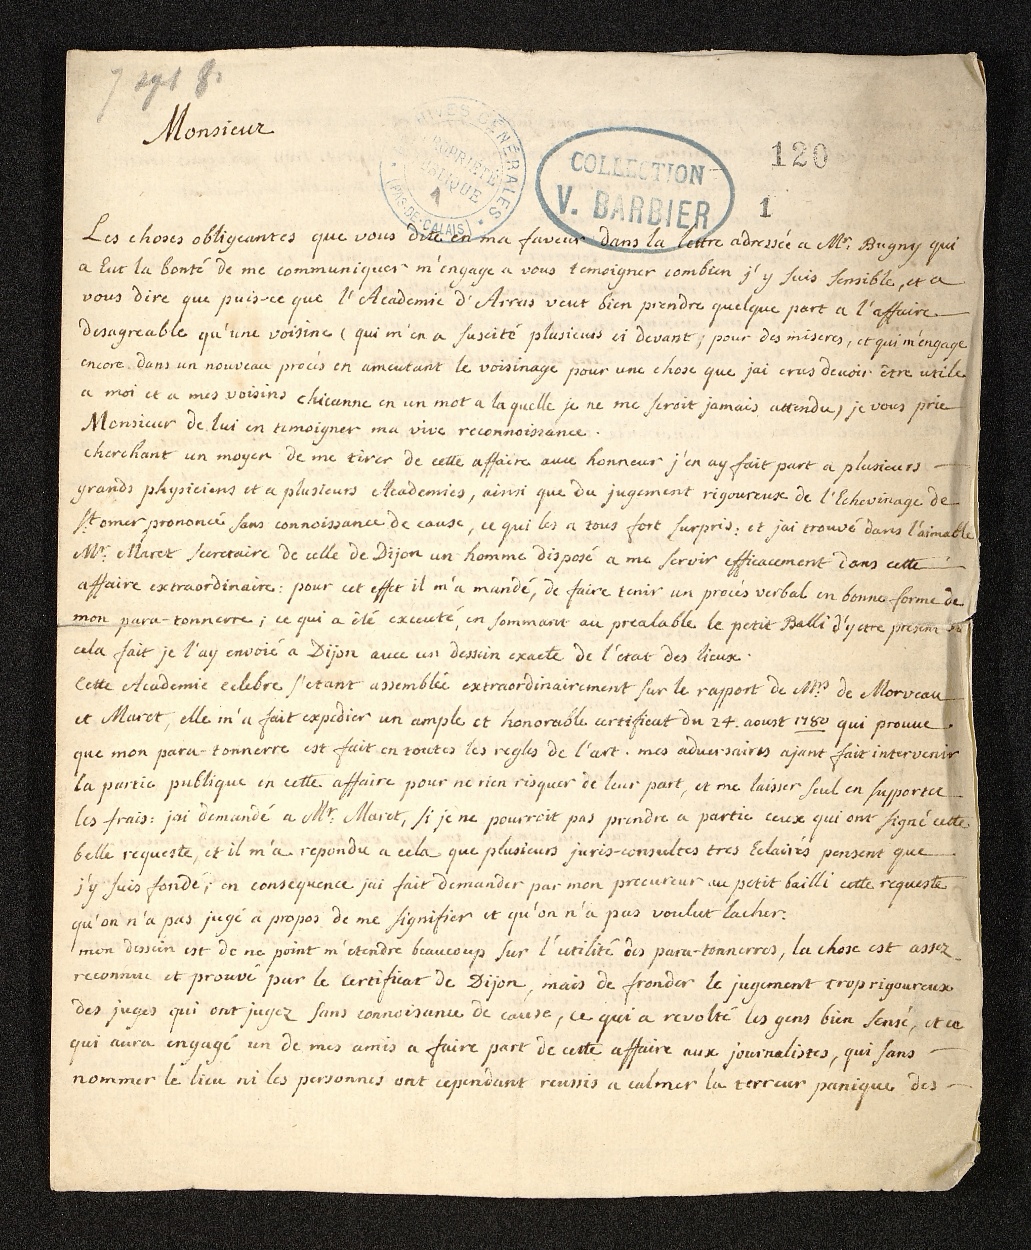 7 sept 8.
Monsieur
ARCHIVES GÉNÉRALES
PROPRIÉTÉ
PUBLIQUE
1
(PAS-DE-CALAIS)
COLLECTION
V. BARBIER
120
1
Les choses obligeantes que vous dite en ma faveur dans la lettre adressée a Mr. Bugny qui
a Eut la bonté de me communiquer m'engage a vous temoigner combien j'y suis sensible, et a
vous dire que puis-ce que l'Academie d'Arras veut bien prendre quelque part a l'affaire
desagreable qu'une voisine (qui m'en a suscité plusieurs ci devant, pour des miseres, et qui m'engage
encore dans un nouveau procés en ameutant le voisinage pour une chose que jai crus devoir être utile
a moi et a mes voisins chicanne en un mot a laquelle je ne me seroit jamais attendu) je vous prie
Monsieur de lui en temoigner ma vive reconnoissance.
cherchant un moyen de me tirer de cette affaire avec honneur j'en ay fait part a plusieurs
grands physiciens et a plusieurs Academies, ainsi que du jugement rigoureux de l'Echevinage de
St. omer prononcé sans connoissance de cause, ce qui les a tous fort surpris: et jai trouvé dans l'aimable
Mr. Maret secretaire de celle de Dijon un homme disposé a me servir efficacement dans cette
affaire extraordinaire: pour cet effet il m'a mandé, de faire tenir un procés verbal en bonne forme de
mon para-tonnerre; ce qui a été executé, en sommant au prealable le petit Balli d'y etre present
cela fait je l'ay envoié à Dijon avec un dessein exacte de l'état des lieux.
Cette Academie celebre s'etant assemblée extraordinairement sur le rapport de Mrs de Morveau
et Maret, elle m'a fait expedier un ample et honorable certificat du 24. aoust 1780 qui prouve
que mon para-tonnerre est fait en toutes les regles de l'art. mes adversaires ajant fait intervenir
la partie publique en cette affaire pour ne rien risquer de leur part, et me laisser seul en supporter
les frais: jai demandé a Mr. Maret, si je ne pourroit pas prendre a partie ceux qui ont signé cette
belle requeste, et il m'a repondu a cela que plusieurs juris-consultes tres Eclairés pensent que
j'y suis fondé; en consequence jai fait demander par mon procureur au petit bailli cette requeste
qu'on n'a pas jugé a propos de me signifier et qu'on n'a pas voulut lacher.
mon dessein est de ne point m'etendre beaucoup sur l'utilité des para-tonnerres, la chose est assez
reconnue et prouvé par le certificat de Dijon, mais de fronder le jugement trop rigoureux
des juges qui ont jugez sans connoisance de cause, ce qui a revolté les gens bien sensé, et ce
qui aura engagé un de mes amis a faire part de cette affaire aux journalistes, qui sans
nommer le lieu ni les personnes ont cependant reussis a calmer la terreur panique des